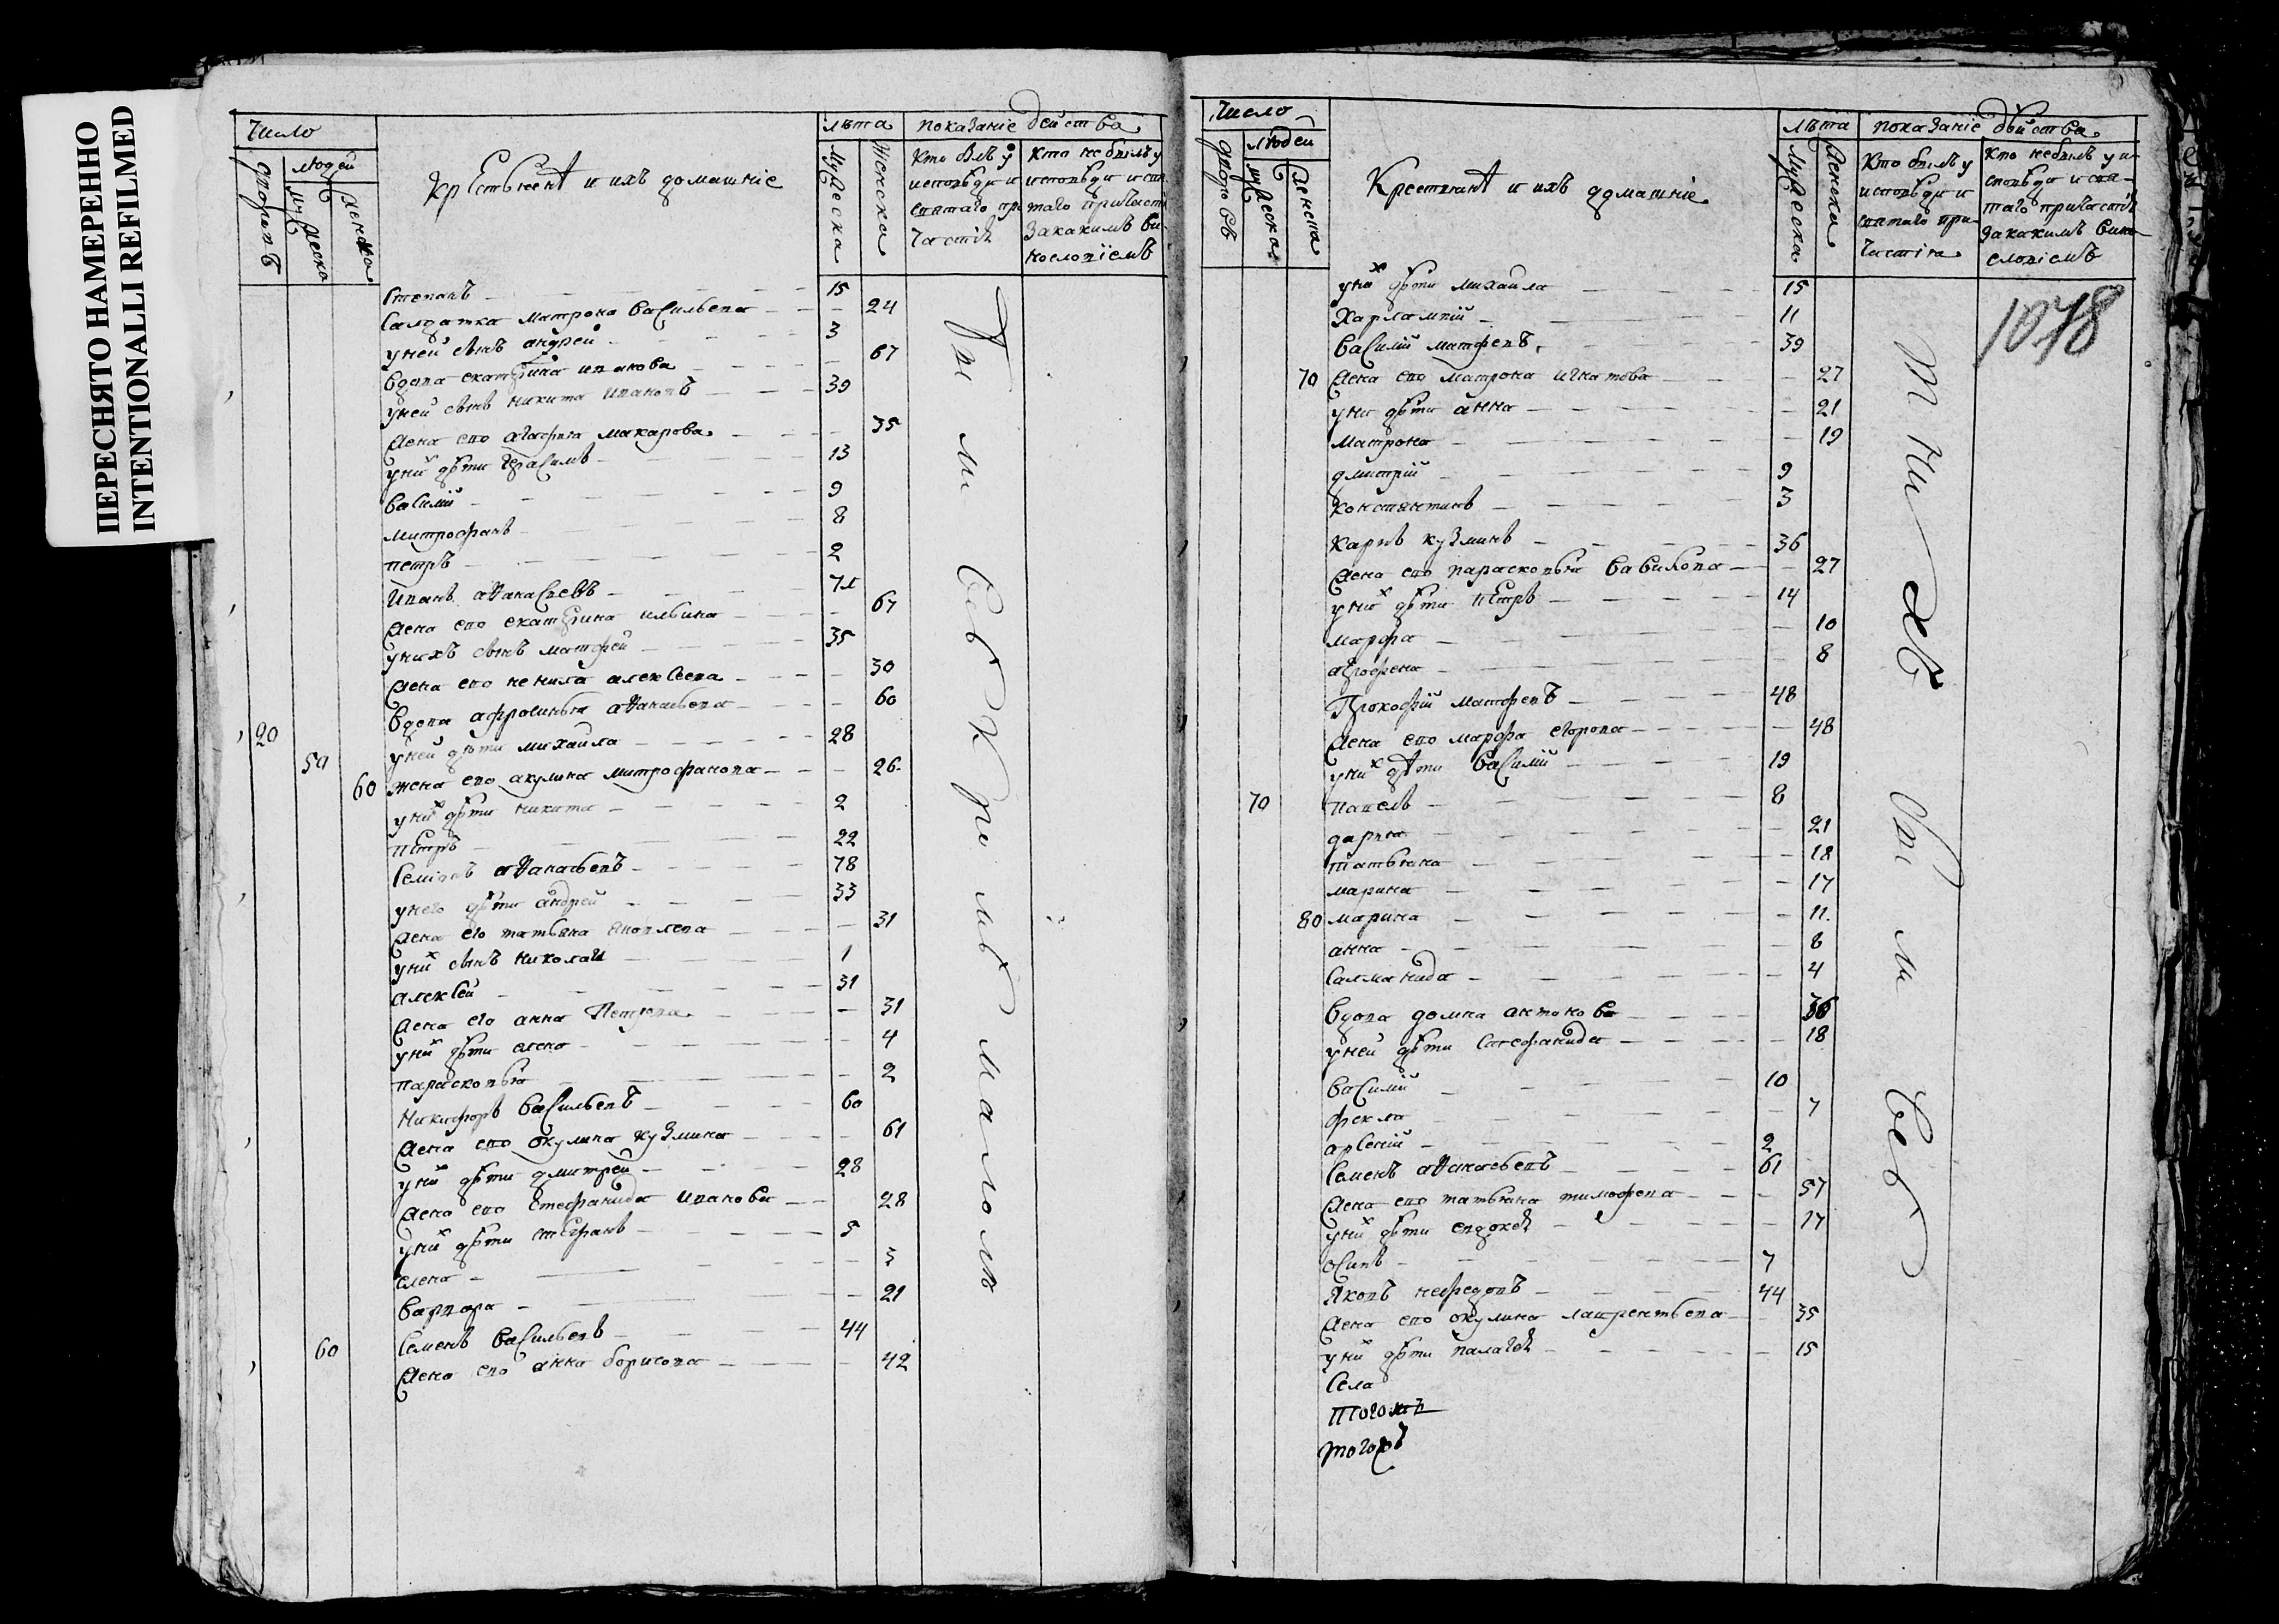 ПЕРЕСНЯТО НАМЕРЕННО
INTENTIONALLI REFILMED
Число
дворовъ
людей
мужеска
женска
крестьяне и ихъ домашніе
лѣта
мужеска
женска
показаніе действа
кто былъ у исповѣди и святаго причастія
кто не былъ у исповѣди и святаго причастія за какимъ винословіемъ
Степанъ 15
Салдатка матрона васильева 24
у ней сынъ андрей 3
вдова екатерина иванова 67
у ней сынъ никита ивановъ 39
жена ево агафия макарова 35
у них дѣти герасимъ 13
василий 9
митрофанъ 8
петръ 2
Иванъ аѳанасьевъ 71
жена ево екатерина ильина 67
у нихъ сынъ матфей 35
жена ево ненила алексѣева 30
вдова афросинья аѳанасьева 60
20 у ней дѣти михаила 28
59
60 жена ево акулина митрофанова 26
у них дѣти никита 2
петръ 22
Семіонъ аѳанасьевъ 78
у него дѣти андрей 33
жена его татьяна яковлева 31
у них сынъ николай 1
алексѣй 31
жена его анна Петрова 31
у них дѣти елена 4
парасковья 2
Никифоръ васильевъ 60
жена ево окулина кузмина 61
у них дѣти дмитрей 28
жена ево стефанида иванова 28
у них дѣти стефанъ 5
елена 3
варвара 21
60 Семенъ васильевъ 44
жена ево анна борисова 42
Число
дворовъ
людей
мужеска
женска
Крестьяне и ихъ домашніе
лѣта
мужеска
женска
показаніе действа
кто былъ у исповѣди и святаго причастія
кто не былъ у исповѣди и святаго причастія за какимъ винословіемъ
1078
у них дѣти михаила 15
Харлампий 11
василий матфеевъ 39
70 жена ево матрона игнатова 27
у них дѣти анна 21
матрона 19
дмитрий 9
константинъ 3
карпъ кузминъ 36
жена ево парасковья вавилова 27
у них дѣти петръ 14
марфа 10
агрофена 8
Прокофий матфеевъ 48
жена ево марфа егорова 48
у них дѣти василий 19
70 павелъ 8
дария 21
татьяна 18
марина 17
80 марина 11
анна 8
саламанида 4
вдова домна антонова 36
у ней дѣти стефанида 18
василий 10
фекла 7
арсений 2
Семенъ аѳанасьевъ 61
жена ево татьяна тимофеева 57
у них дѣти евдокѣя 17
осипъ 7
Яковъ нефедовъ 44
жена ево окулина лаврентьева 35
у них дѣти палагея 15
Села
того
тогожъ